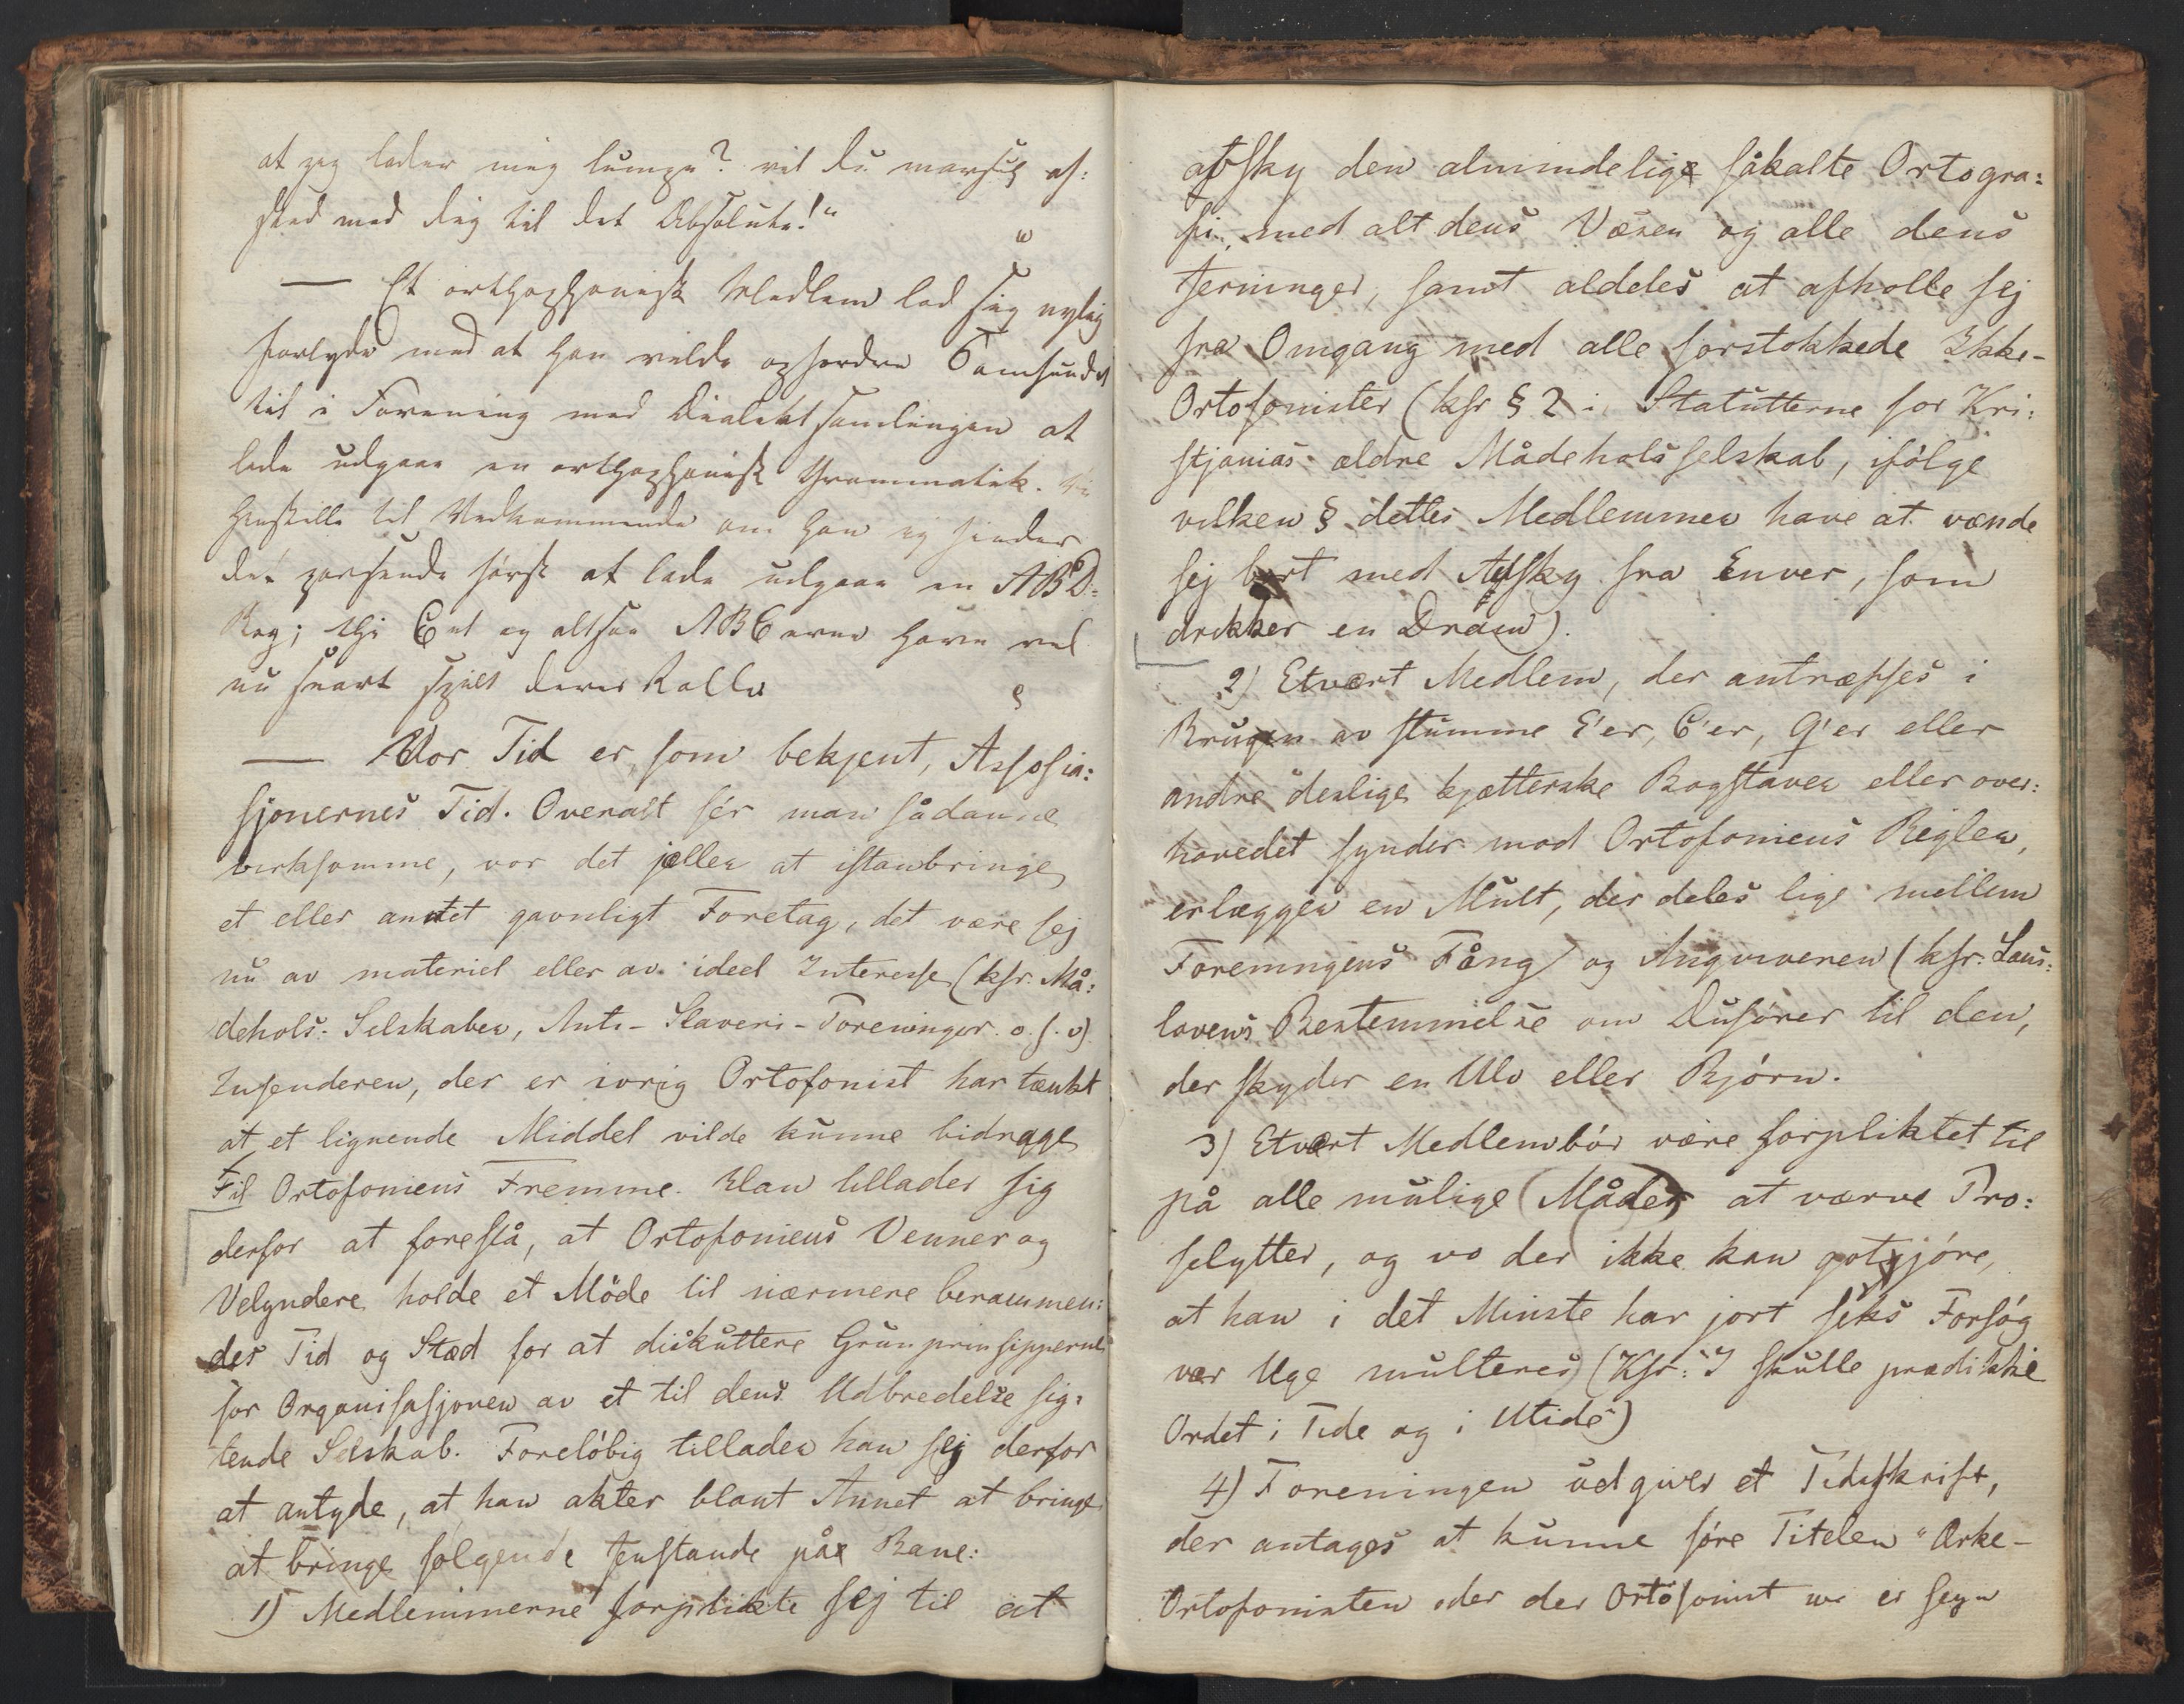 at jeg lader mig lumpe? vil du marsch af:
sted med dig til det Absolute!"
— Et orthophonisk Medlem lod sig nylig
forlyde med at han vilde opfordre Samfundet
til i Forening med Dialektsamlingen at
lade udgaae en orthophonisk Grammatik. Vi
henstille til Vedkommende om han ej finder
det passende først at lade udgaae en ABD-
Bog; thi Cet og altsaa ABCerne have vel
nu snart spilt deres Rolle
— Vor Tid er, som bekjent, Assosia:
sjonernes Tid. Overalt sér man sådanne
virksomme, vor det jæller at istanbringe
et eller andet gavnligt Foretag, det være sej
nu av materiel eller av ideel Interesse (kfr. Må:
dehols-Selskaber, Anti-Slaveri-Foreninger o. s. v)
Insenderen, der er ivrig Ortofonist har tænkt
at et lignende Middel vilde kunne bidrage
til Ortofoniens Fremme. Han tillader sig
derfor at foreslå, at Ortofoniens Venner og
Velyndere holde et Möde til nærmere berammen:
des Tid og Stæd for at diskuttere Grunprinsipperne
for Organisasjonen av et til dens Udbredelse sig:
tende Selskab. Forelöbig tillader han sej derfor
at antyde, at han akter blant Annet at bringe
at bringe følgende Jenstande på Bane:
1) Medlemmerne forplikte sej til at
afsky den almindelige såkalte Ortogra:
fi, med alt dens Væsen og alle dens
Jerninger, samt aldeles at afholle sej
fra Omgang med alle forstokkede Ikke-
Ortofonister (kfr § 2 i Statutterne for Kri:
stjanias ældre Mådeholsselskab, ifölge
vilken § dettes Medlemmer have at vænde
sej bort med Afsky fra Enver, som
drikker en Dram).
2) Etvært Medlem, der antræffes i
Brugen av stumme E'er, C'er, Q'er eller
andre deslige kjætterske Bogstaver eller over:
hovedet synder mod Ortofoniens Regler,
erlægger en Mult, der deles lige mellem
Foreningens Fång og Angiveren (kfr. Lans:
lovens Bestemmelse om Dusörer til den,
der skyder en Ulv eller Björn.
3) Etvært Medlem bör være forpliktet til
på alle mulige Måder at værve Pro:
selytter, og vo der ikke kan gotjöre,
at han i det Minste har jort seks Forsög
vær Uge multeres (Kfr: "I skulle prædikke
Ordet i Tide og i Utide")
4) Foreningen udgiver et Tidsskrift,
der antages at kunne före Titelen "Ærke-
Ortofonisten oder der Ortofonist wie er seyn